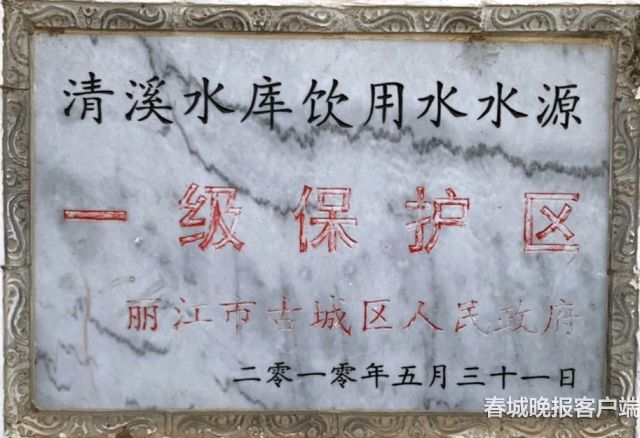 清溪水库饮用水水源
一级保护区
丽江市古城区人民政府
二零一零年五月三十一日
春城晚报客户端